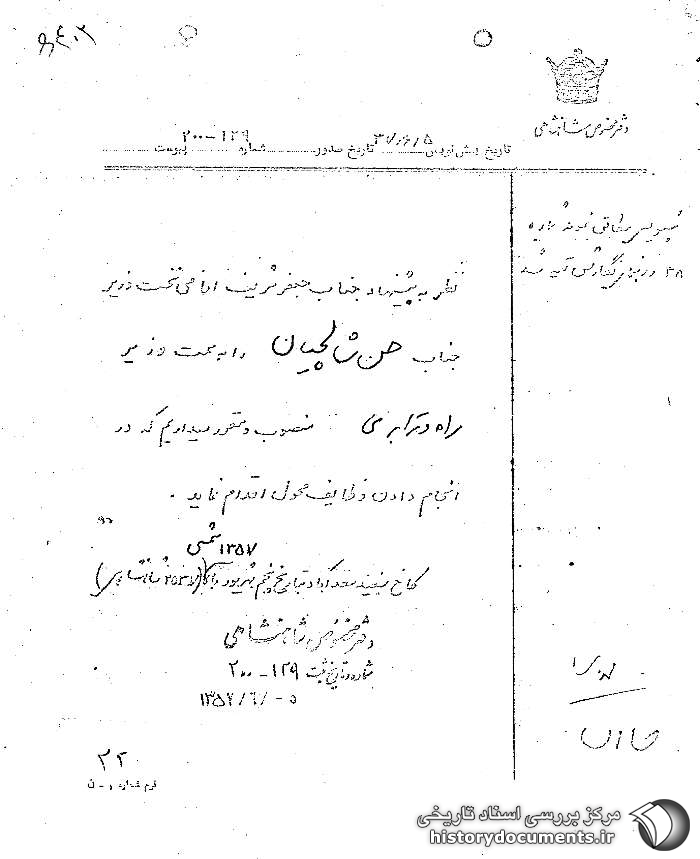 دفتر مخصوص شاهنشاهی
تاریخ پیش نویس ۳۷/۶/۵ تاریخ صدور شماره ۱۲۹-۲۰۰ پیوست
نظر به پیشنهاد جناب جعفر شریف امامی نخست وزیر
جناب حسن شالچیان را به سمت وزیر
راه و ترابری منصوب و مقرر میداریم که در
انجام دادن وظایف محول اقدام نماید .
۱۳۵۷ شمسی
کاخ سفید سعدآباد بتاریخ پنجم شهریور ماه
دفتر مخصوص شاهنشاهی
شماره و تاریخ ثبت ۱۲۹-۲۰۰
۱۳۵۷/۶/-۵
۲۲
فرم شماره
مرکز بررسی اسناد تاریخی
historydocuments.ir